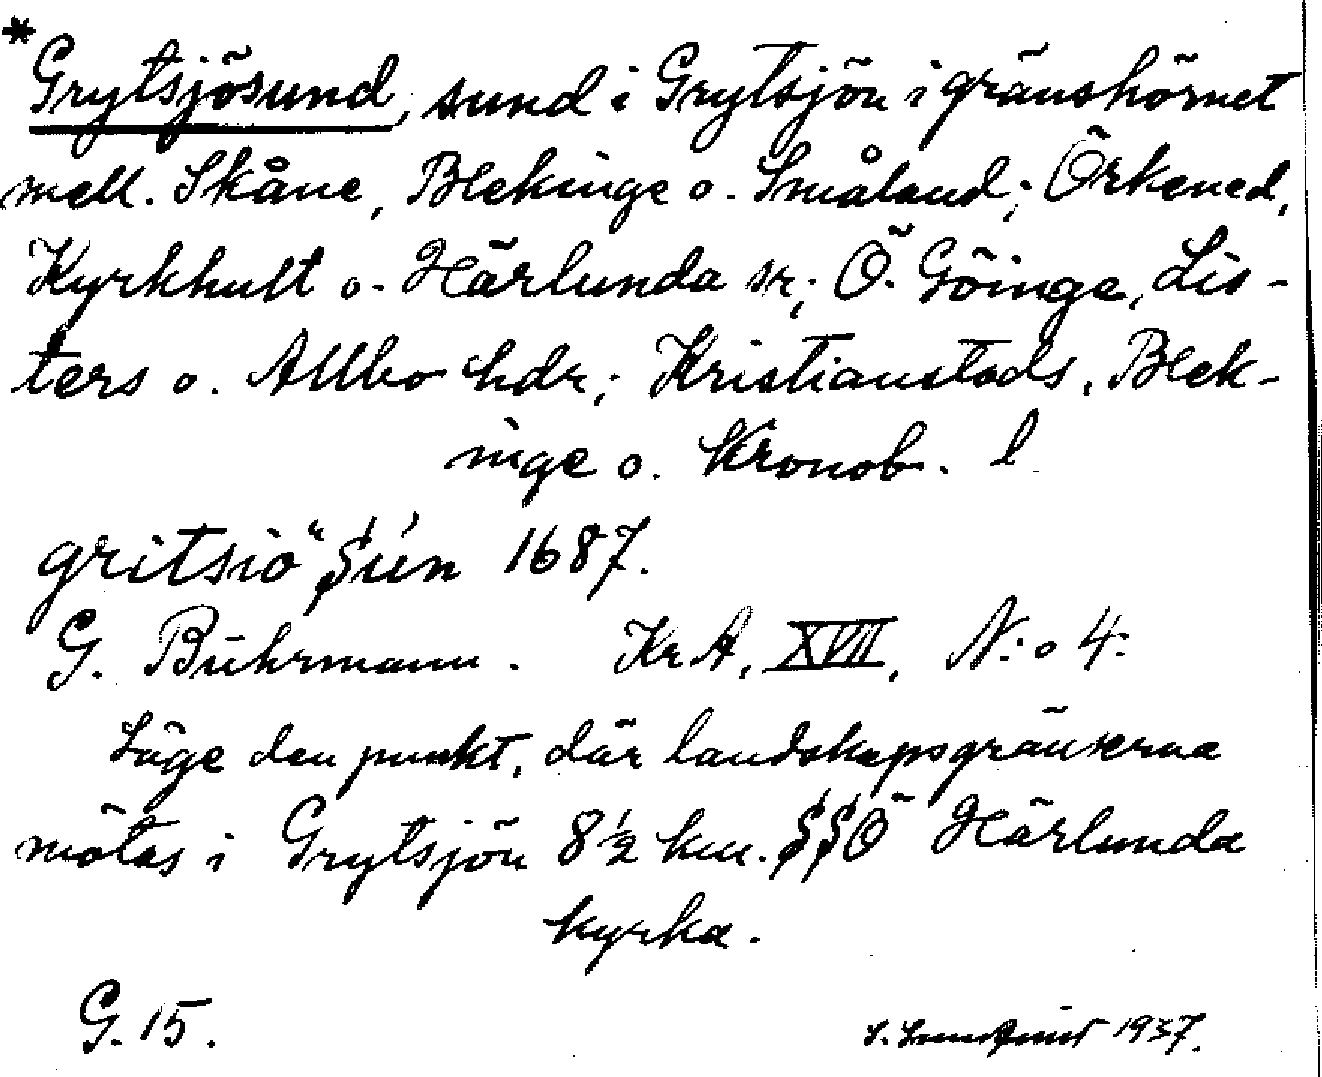 * Grytsjösund, sund i Grytsjön i gränshörnet
mell. Skåne, Blekinge o. Småland; Örkened,
Kyrkhult o. Härlunda sr; Ö. Göinge, Lis-
ters o. Allbo hdr; Kristianstads, Blek-
inge o. Kronob. l
gritsiö Sún 1687.
G. Buhrmann. KrA, XVII, N:o 4.
Läge den punkt, där landskapsgränserna
mötas i Grytsjön 8 ½ km. SSÖ Härlunda
kyrka.
G. 15.
1937.